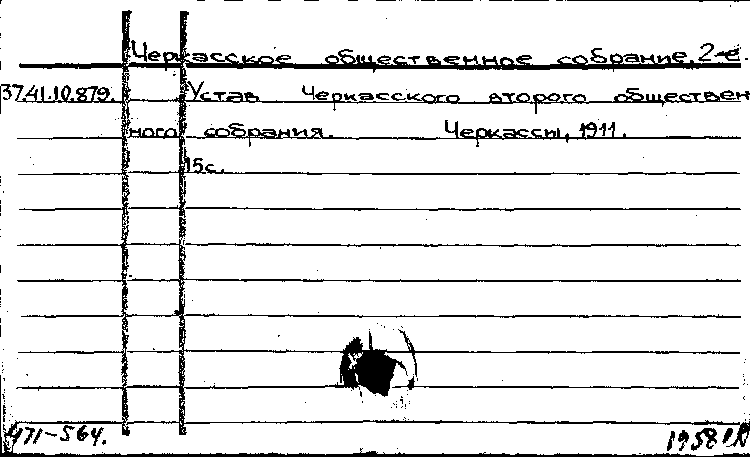 Черкасское общественное собрание, 2-е.
37.41.10.879. Устав Черкасского второго обществен
ного собрания. Черкассы, 1911.
15с.
471-564. 1958